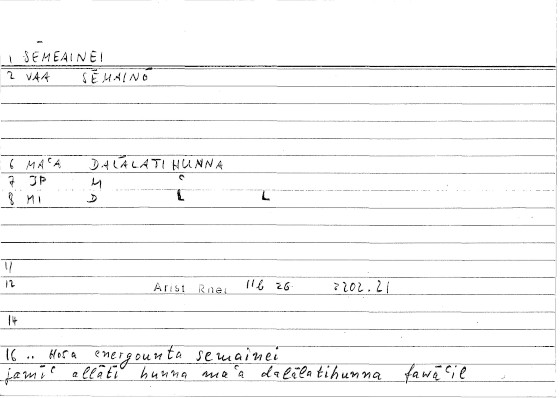 1 SĒMEAINEI
2 VAA SĒMAINŌ
6 MAʿA DALĀLATIHUNNA
7 JP M ʿ
8 MI D L L
11
12 Arist Rhet 11b 26 2202.21
14
16 .. Hosa energounta semainei
jamīʿ allātī hunna maʿa dalālatihunna fawāʿil